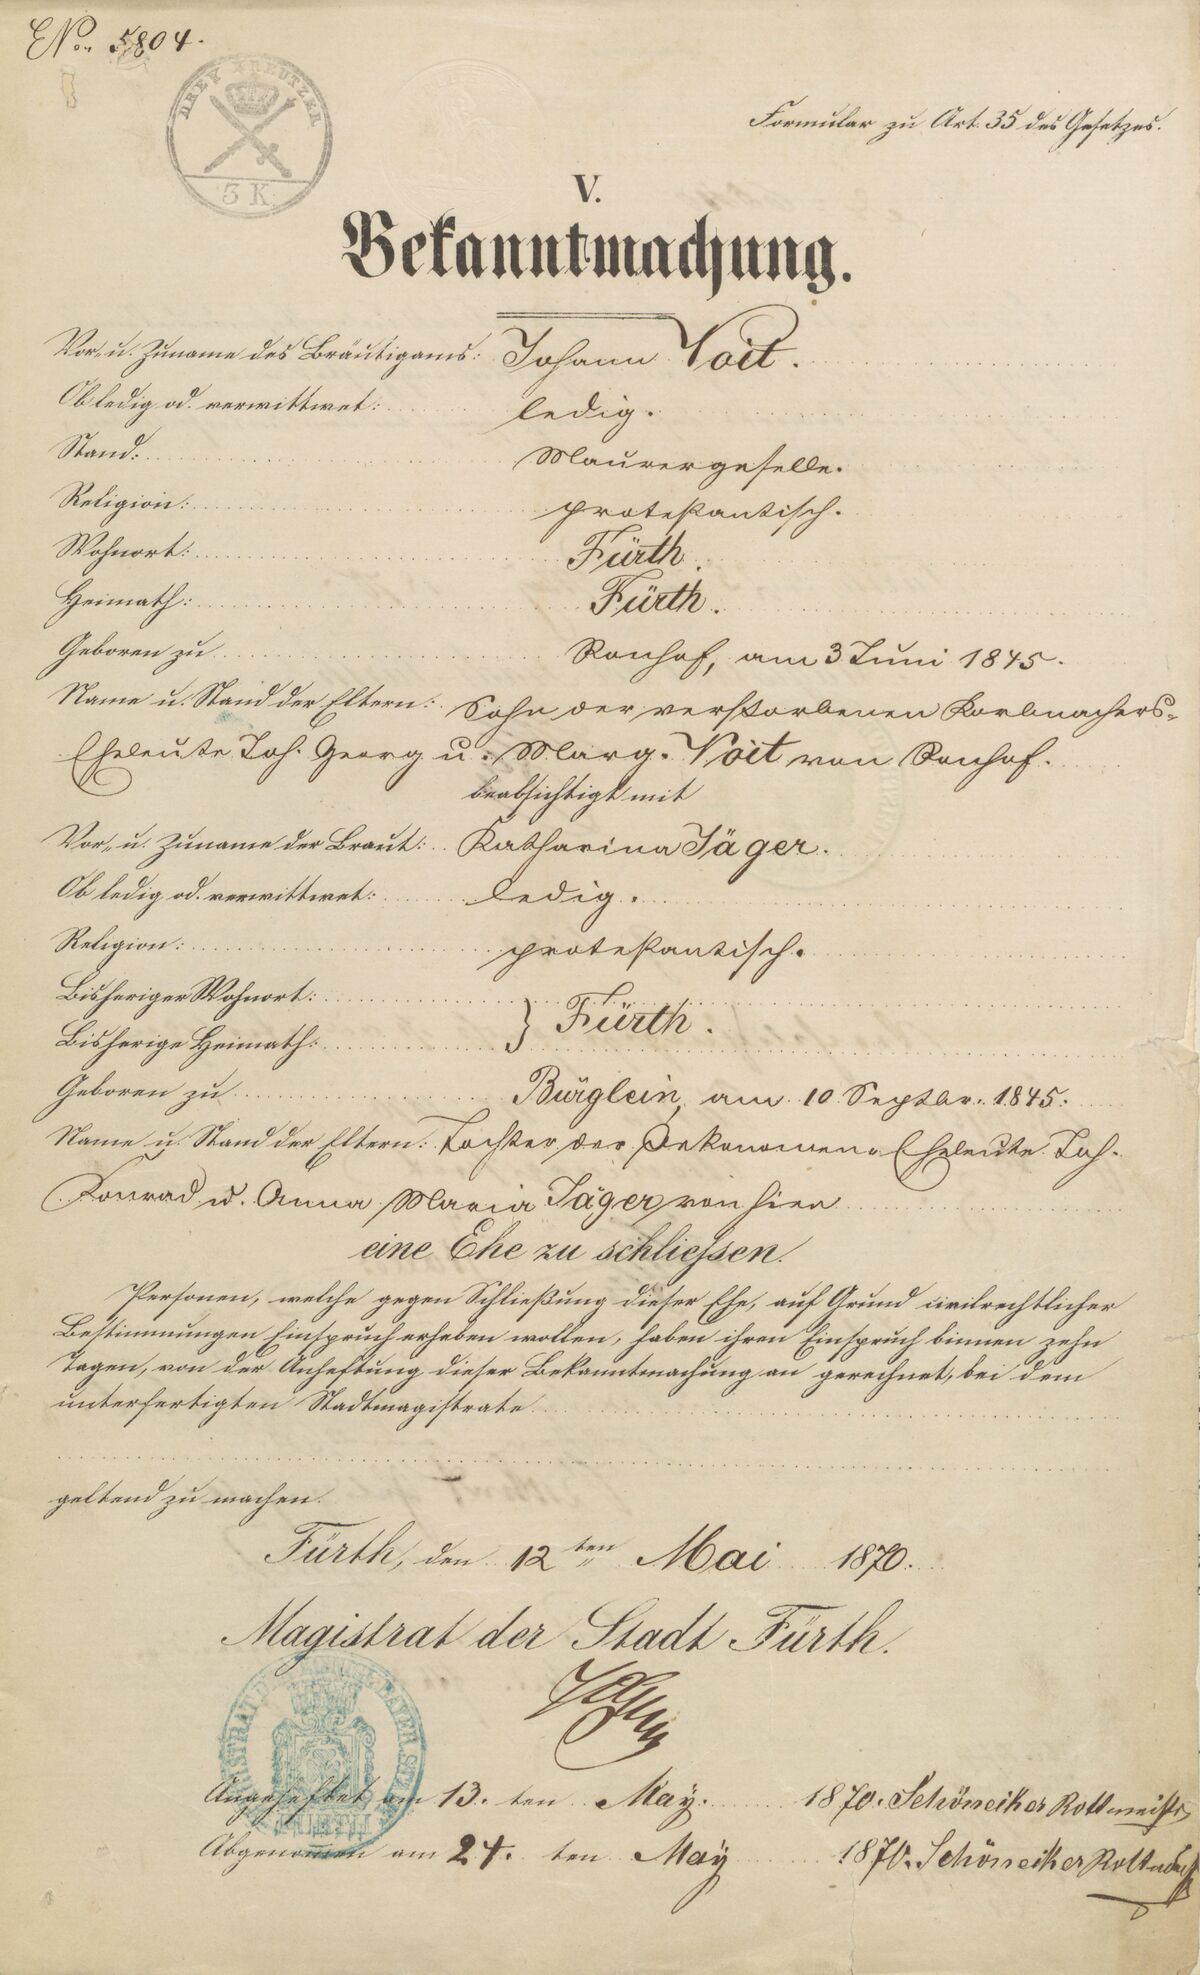 ENo. 5804.
DREY KREUTZER
3 K.
Formular zu Art. 35 des Gesetzes.
V.
Bekanntmachung.
Vor- u. Zuname des Bräutigams: Johann Voit.
Ob ledig od. verwittwet: ledig.
Stand: Maurergeselle.
Religion: protestantisch.
Wohnort: Fürth.
Heimath: Fürth.
Geboren zu Ronhof, am 3 Juni 1845.
Name u. Stand der Eltern: Sohn der verstorbenen Korbmachers-
Eheleute Joh. Georg u. Marg. Voit von Ronhof.
beabsichtigt mit
Vor- u. Zuname der Braut: Katharina Jäger.
Ob ledig od. verwittwet: ledig.
Religion: protestantisch.
Bisheriger Wohnort: } Fürth.
Bisherige Heimath:
Geboren zu Bürglein, am 10 Septbr. 1845.
Name u. Stand der Eltern: Tochter der Oekonomen-Eheleute Joh.
Konrad u. Anna Maria Jäger von hier
eine Ehe zu schliessen.
Personen, welche gegen Schließung dieser Ehe, auf Grund civilrechtlicher
Bestimmungen Einspruch erheben wollen, haben ihren Einspruch binnen zehn
Tagen, von der Anheftung dieser Bekanntmachung an gerechnet, bei dem
unterfertigten Stadtmagistrate
geltend zu machen.
Fürth, den 12ten Mai 1870.
Magistrat der Stadt Fürth.
FÜRTH
Angeheftet am 13. ten May. 1870. Schöneiker Rottmeister
Abgenommen am 24. ten May 1870. Schöneiker